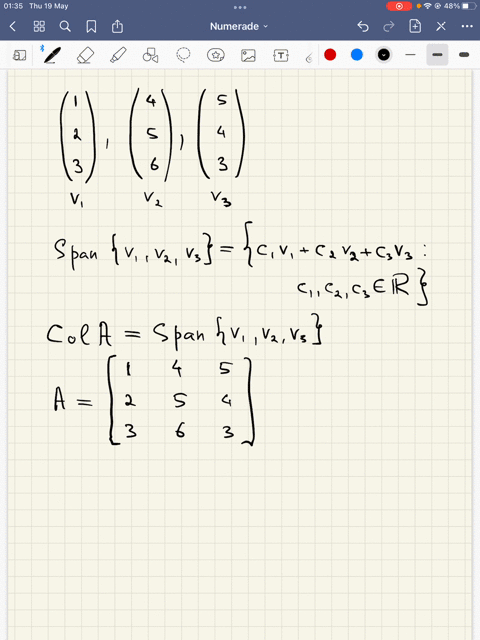 01:35 Thu 19 May 48%
Numerade
1 4 5
2 , 5 , 4
3 6 3
V₁ V₂ V₃
Span {V₁, V₂, V₃} = {C₁V₁ + C₂V₂ + C₃V₃ :
C₁, C₂, C₃ ∈ ℝ}
Col A = Span {V₁, V₂, V₃}
1 4 5
A = 2 5 4
3 6 3